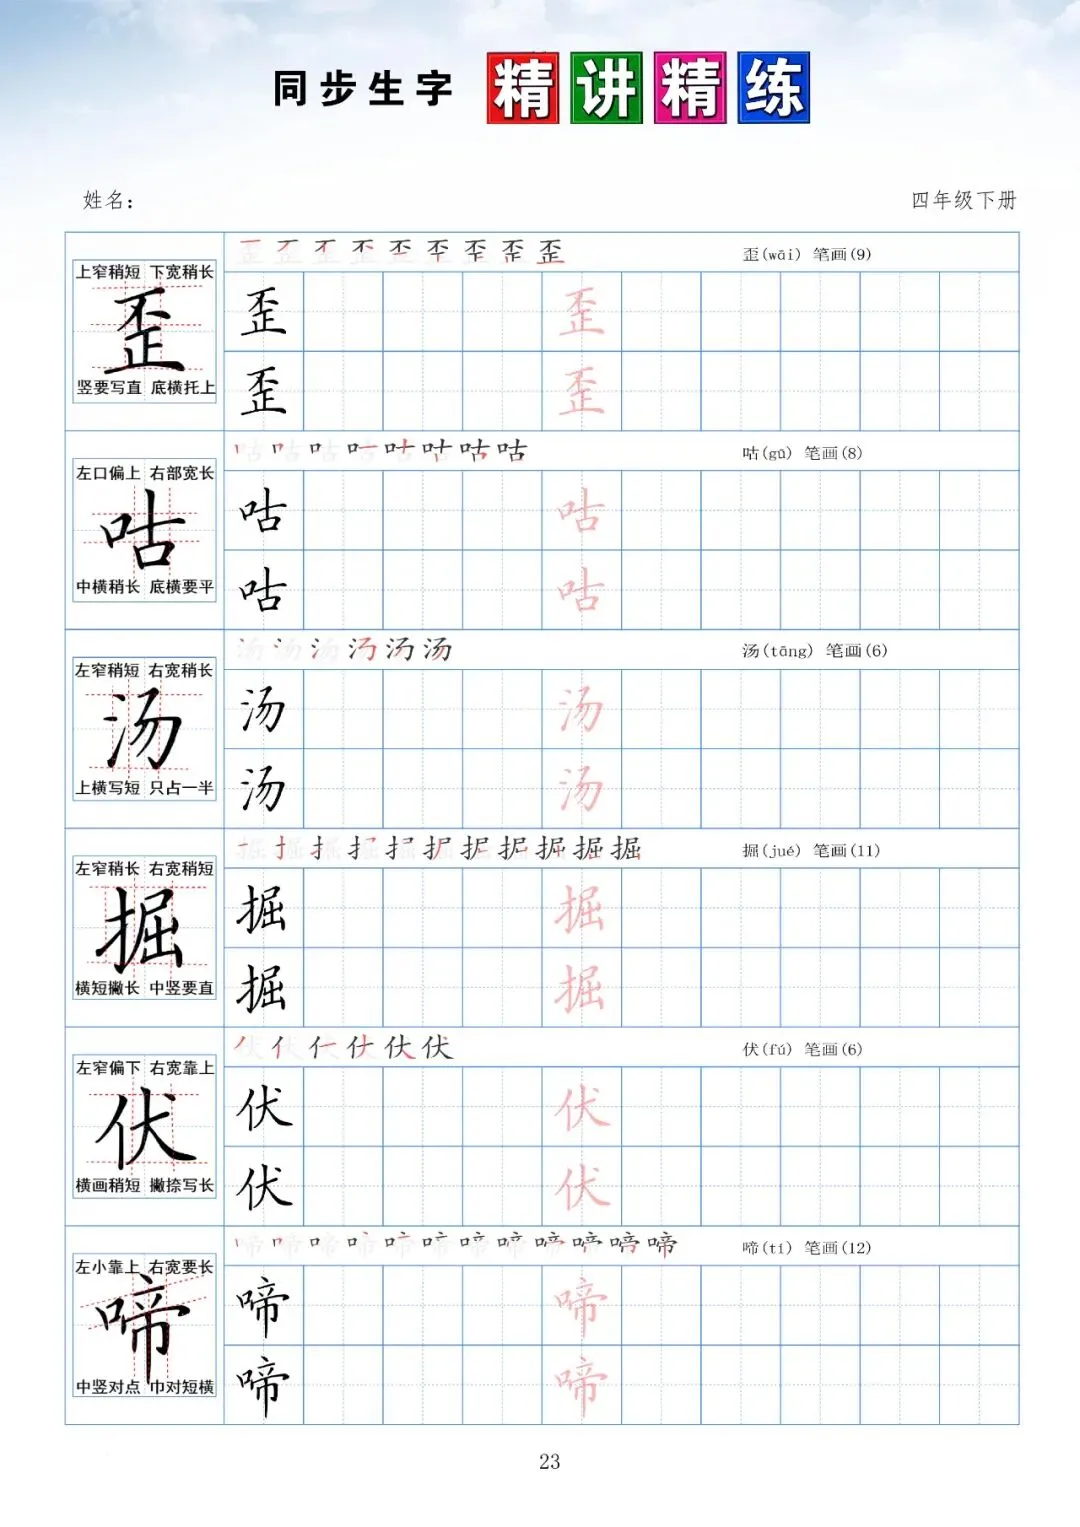 同步生字 精讲精练
姓名： 四年级下册
歪(wāi) 笔画(9)
上窄稍短 下宽稍长
歪
竖要写直 底横托上
歪 歪
歪 歪
咕(gū) 笔画(8)
左口偏上 右部宽长
咕
中横稍长 底横要平
咕 咕
咕 咕
汤(tāng) 笔画(6)
左窄稍短 右宽稍长
汤
上横写短 只占一半
汤 汤
汤 汤
掘(jué) 笔画(11)
左窄稍长 右宽稍短
掘
横短撇长 中竖要直
掘 掘
掘 掘
伏(fú) 笔画(6)
左窄偏下 右宽靠上
伏
横画稍短 撇捺写长
伏 伏
伏 伏
啼(tí) 笔画(12)
左小靠上 右宽要长
啼
中竖对点 巾对短横
啼 啼
啼 啼
23